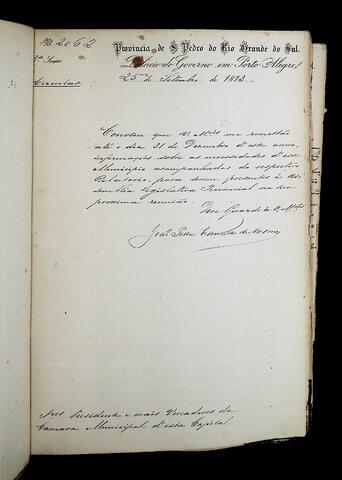 Nº 2062
Provincia de S Pedro do Rio Grande do Sul.
Palacio do Governo em Porto Alegre
25 de Setembro de 1873
Circular
Convem que Vmces me remettão
até o dia 31 de Dezembro d'este anno,
informações sobre as necessidades d'esse
Municipio acompanhadas do respectivo
Relatorio, para serem presentes á As
semblea Legislativa Provincial na sua
proxima reunião.
Deos Guarde a Vmces
João Pedro Carvalho de Moraes
Snres Presidente e mais Vereadores da
Camara Municipal d'esta Capital